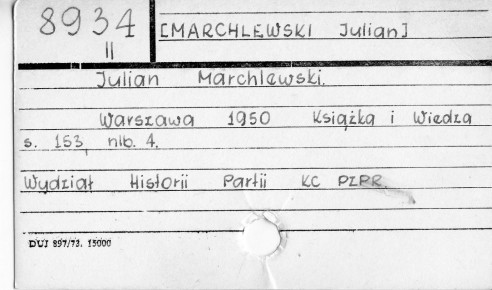 8934
II
[MARCHLEWSKI Julian]
Julian Marchlewski.
Warszawa 1950 Książka i Wiedza
s. 153, nlb. 4.
Wydział Historii Partii KC PZPR.
DUJ 897/73. 15000